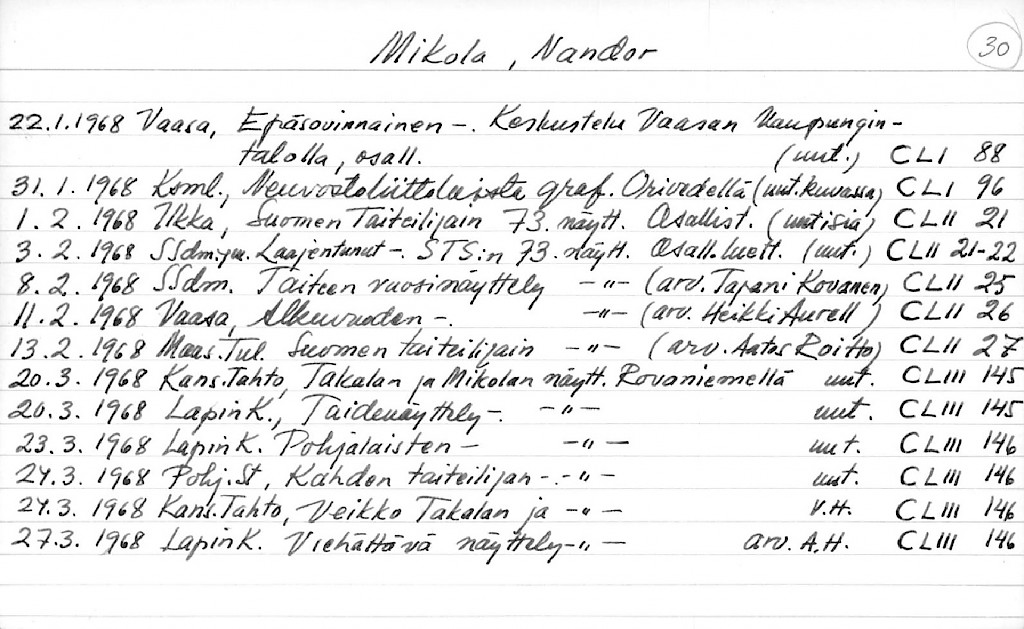 Mikola, Nandor 30
22.1.1968 Vaasa, Epäsovinnainen -. Keskustelu Vaasan Kaupungin-
talolla, osall. (uut.) CLI 88
31.1.1968 Ksml., Neuvostoliittolaista graf. Orivedellä (uut. kuvassa) CLI 96
1.2.1968 Ilkka, Suomen Taiteilijain 73. näytt. Osallist. (uutisia) CLII 21
3.2.1968 SSdm. ym. Laajentunut -. STS:n 73. näytt. Osall. luett. (uut.) CLII 21-22
8.2.1968 SSdm. Taiteen vuosinäyttely -"- (arv. Tapani Kovanen) CLII 25
11.2.1968 Vaasa, Alkuvuoden -. -"- (arv. Heikki Aurell) CLII 26
13.2.1968 Maas. Tul. Suomen taiteilijain -"- (arv. Aatos Roitto) CLII 27
20.3.1968 Kans. Tahto, Takalan ja Mikolan näytt. Rovaniemellä uut. CLIII 145
20.3.1968 Lapin K., Taidenäyttely -. -"- uut. CLIII 145
23.3.1968 Lapin K. Pohjalaisten - -"- uut. CLIII 146
24.3.1968 Pohj. St, Kahden taiteilijan -. -"- uut. CLIII 146
24.3.1968 Kans. Tahto, Veikko Takalan ja -"- V.H. CLIII 146
27.3.1968 Lapin K. Viehättävä näyttely -"- arv. A.H. CLIII 146